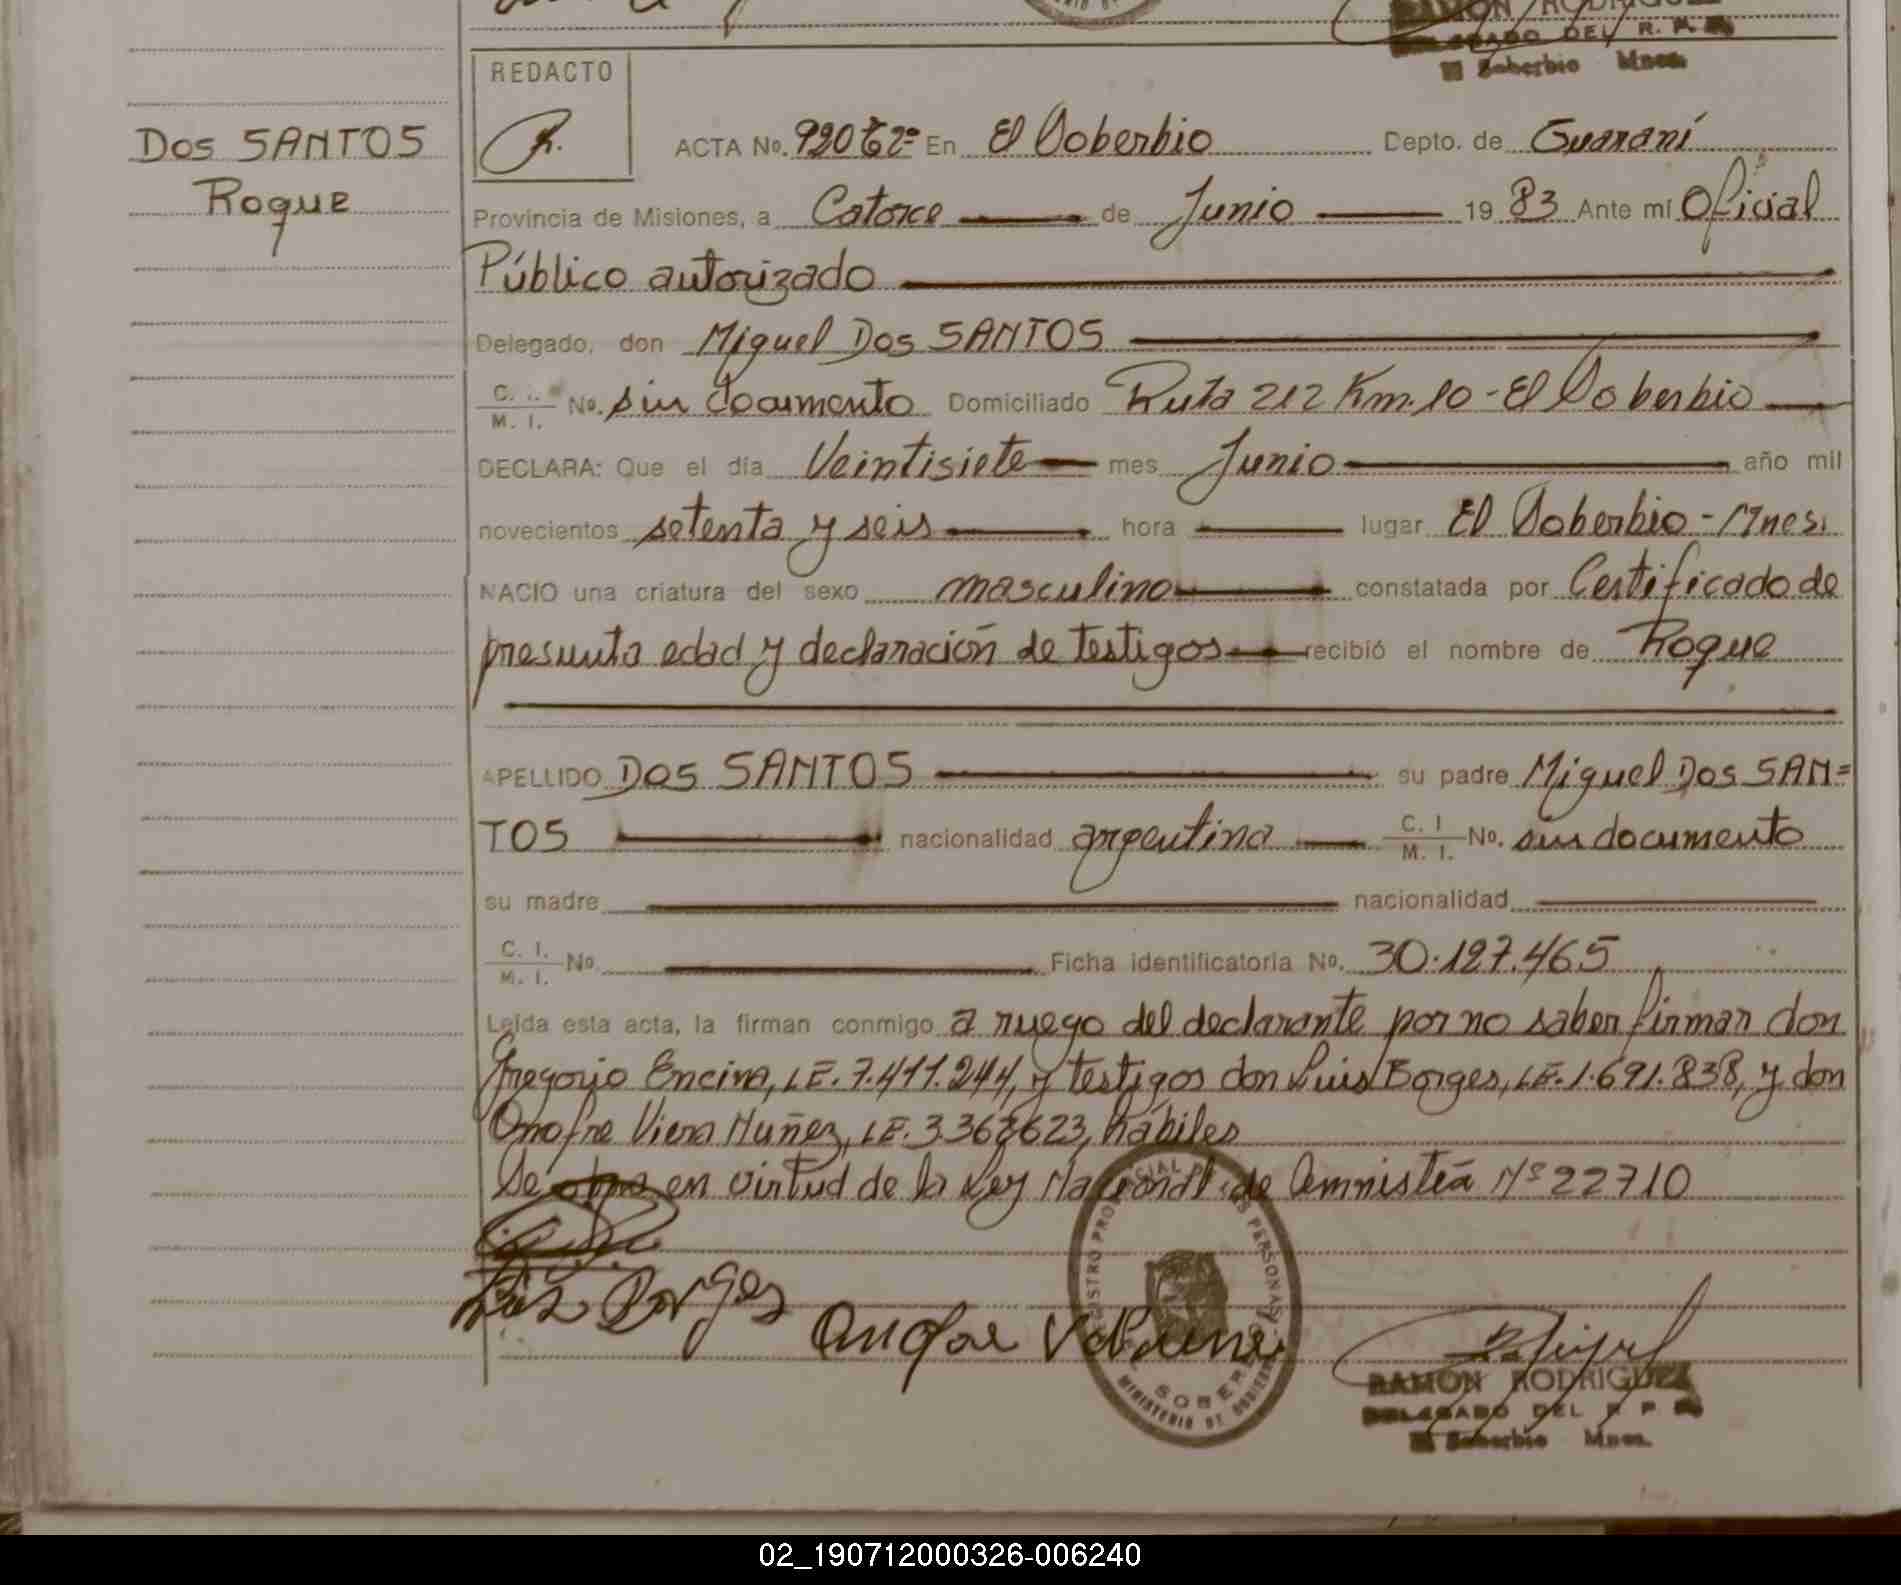 RAMON RODRIGUEZ
DELEGADO DEL R. P. P.
El Soberbio Mnes.
REDACTO
Dos SANTOS
Roque
ACTA No. 920 Tº 2º En El Soberbio Depto. de Guaraní
Provincia de Misiones, a Catorce de Junio 1983 Ante mí Oficial
Público autorizado
Delegado, don Miguel Dos SANTOS
C. I. / M. I. No. sin documento Domiciliado Ruta 212 Km. 10 - El Soberbio
DECLARA: Que el día Veintisiete mes Junio año mil
novecientos setenta y seis hora lugar El Soberbio - Mnes.
NACIO una criatura del sexo masculino constatada por Certificado de
presunta edad y declaración de testigos recibió el nombre de Roque
APELLIDO Dos SANTOS su padre Miguel Dos SAN=
TOS nacionalidad argentina C. I / M. I. No. sin documento
su madre nacionalidad
C. I. / M. I. No. Ficha identificatoria No. 30.127.465
Leída esta acta, la firman conmigo a ruego del declarante por no saber firmar don
Gregorio Encina, LE. 7.411.244, y testigos don Luis Borges, LE. 1.691.838, y don
Onofre Viera Nuñez, LE. 3.363623, hábiles
Se en virtud de la Ley Nacional de Amnistía Nº 22710
Luis Borges
REGISTRO PROVINCIAL DE LAS PERSONAS
SOBERBIO
MINISTERIO DE GOBIERNO
RAMON RODRIGUEZ
DELEGADO DEL R. P. P.
El Soberbio Mnes.
02_190712000326-006240